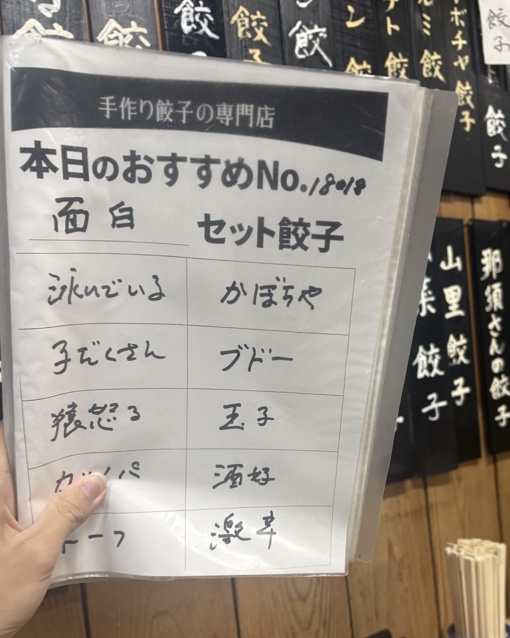 手作り餃子の専門店
本日のおすすめNo.18018
面白 セット餃子
泳いでいる かぼちゃ
子だくさん ブドー
猿怒る 玉子
カッパ 酒好
トーフ 激辛
餃子
餃子
餃子
餃子
餃子
ン
餃子
ト餃子
ミ餃子
ボチャ餃子
餃子
餃子
菜餃子
山里餃子
那須さんの餃子